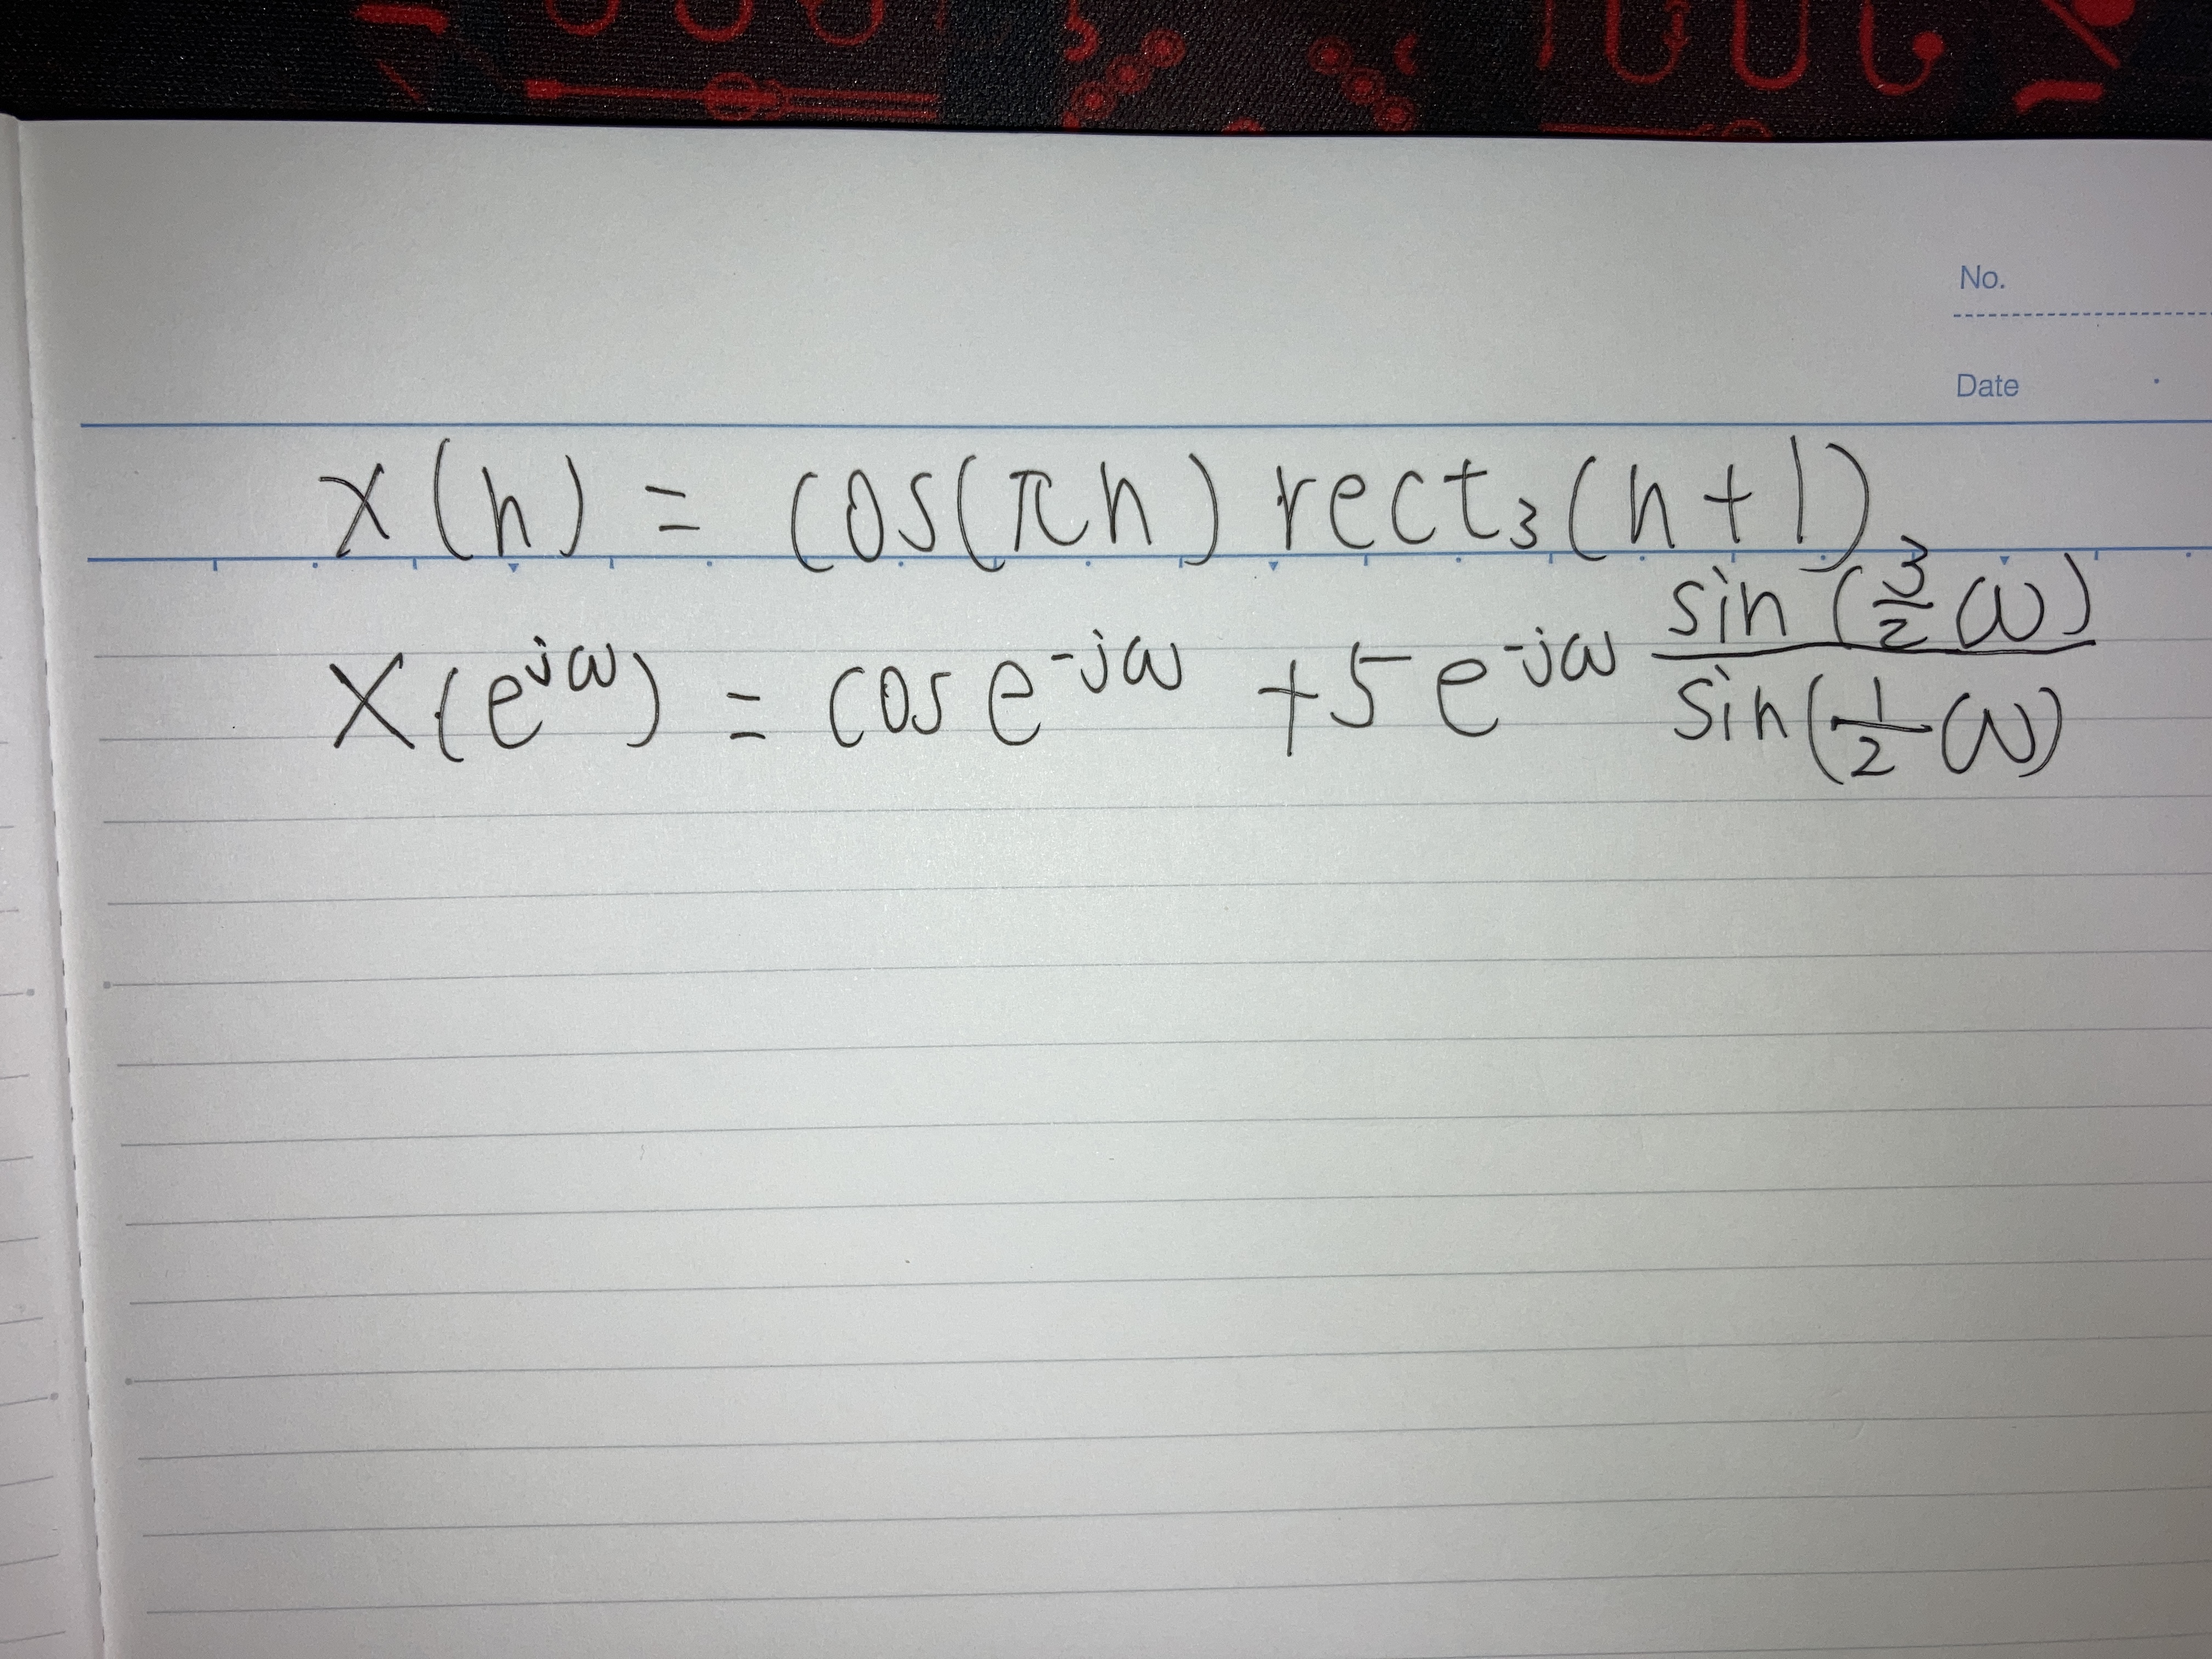 No.
Date
x(n) = cos(πn) rect₃(n+1)
X(e^jω) = cos e^-jω + 5 e^-jω sin(3/2 ω) / sin(1/2 ω)